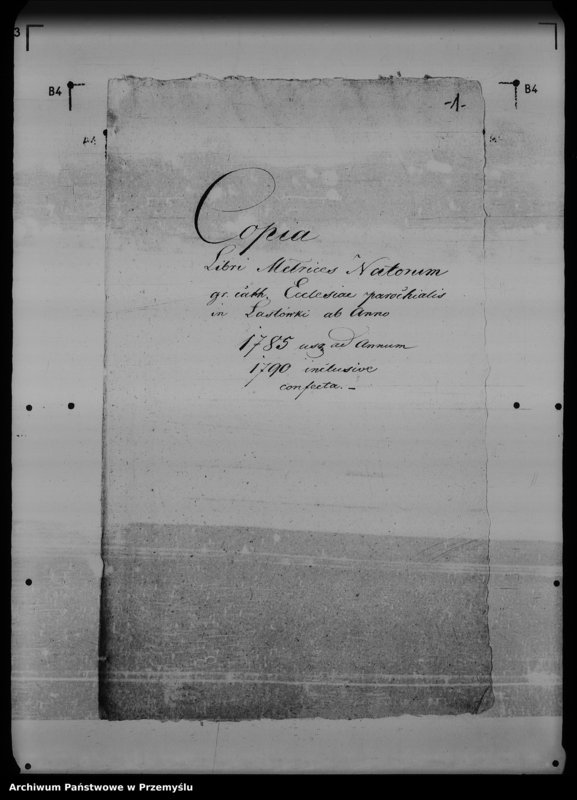 3
B4
B4
-1-
Copia
Libri Metrices Natorum
gr. cath. Ecclesiae parochialis
in Lastówki ab Anno
1785 usq ad Annum
1790 inclusive
confecta. -
Archiwum Państwowe w Przemyślu